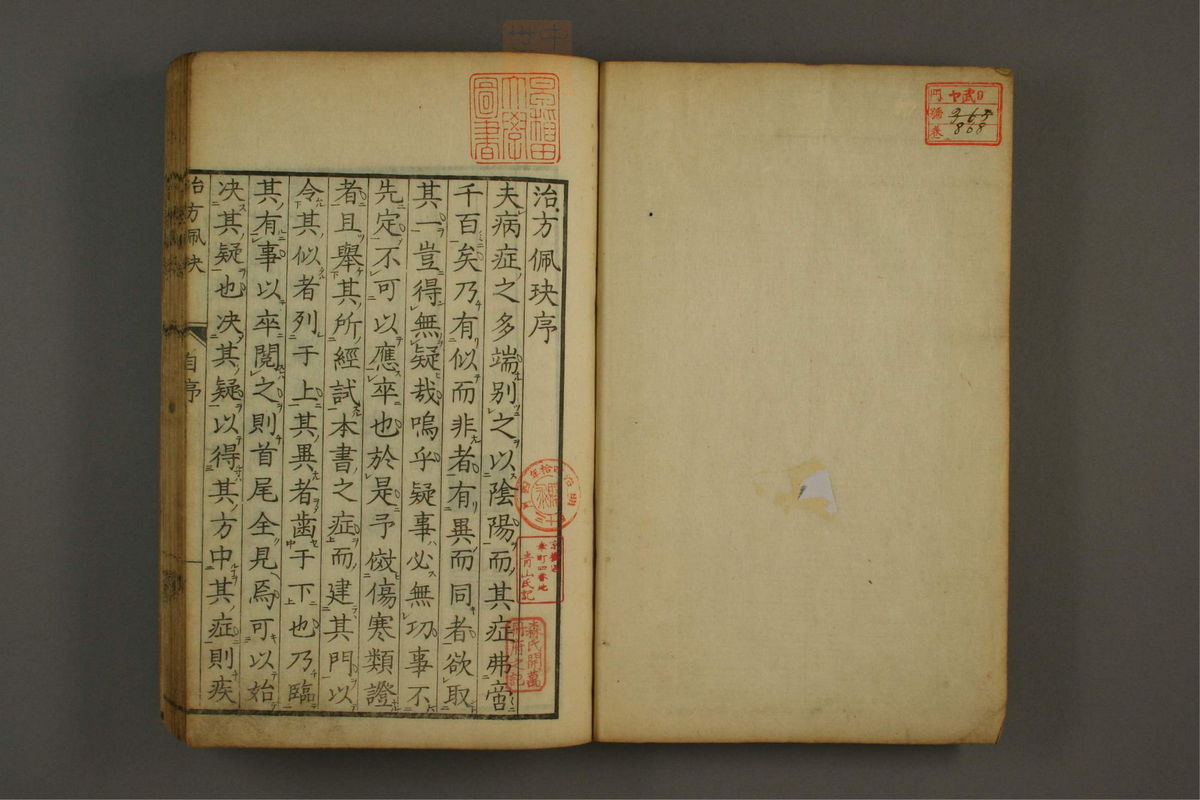 治方佩玦序
夫病症之多端別之以陰陽而其症弗啻
千百矣乃有似而非者有異而同者欲取
其一豈得無疑哉嗚乎疑事必無功事不
先定不可以應卒也於是予倣傷寒類證
者且舉其所經試本書之症而建其門以
令其似者列于上其異者齒于下也乃臨
其有事以卒閱之則首尾全見焉可以始
决其疑也决其疑以得其方中其症則疾
治方佩玦
自序
早稲田
大學
圖書
門
號
卷
青山氏記
森氏開萬
冊府之記